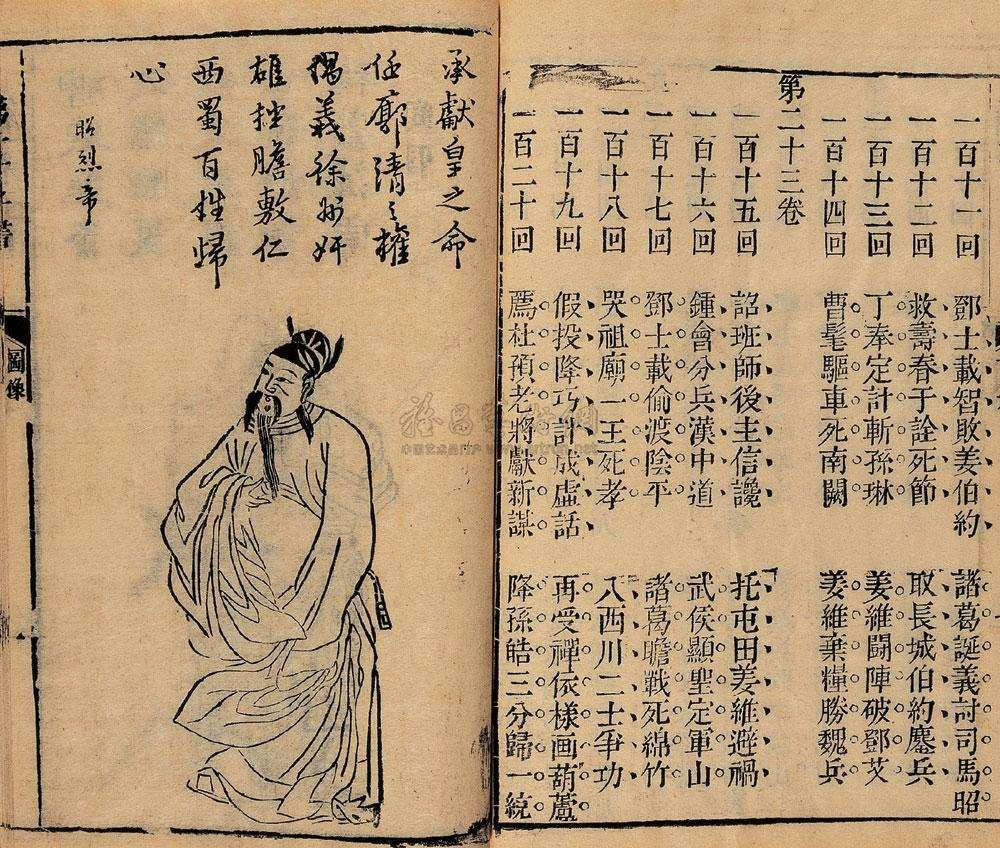 一百十一回 鄧士載智敗姜伯約 諸葛誕義討司馬昭
一百十二回 救壽春于詮死節 取長城伯約鏖兵
一百十三回 丁奉定計斬孫琳 姜維鬪陣破鄧艾
一百十四回 曹髦驅車死南闕 姜維棄糧勝魏兵
第二十三卷
一百十五回 詔班師後主信讒 托屯田姜維避禍
一百十六回 鍾會分兵漢中道 武侯顯聖定軍山
一百十七回 鄧士載偷渡陰平 諸葛瞻戰死綿竹
一百十八回 哭祖廟一王死孝 入西川二士爭功
一百十九回 假投降巧計成虛話 再受禪依樣画葫蘆
一百二十回 薦杜預老將獻新謀 降孫皓三分歸一統
承獻皇之命
任廓清之權
義徐州奸
雄披膽敷仁
西蜀百姓歸
心
昭烈帝
圖像